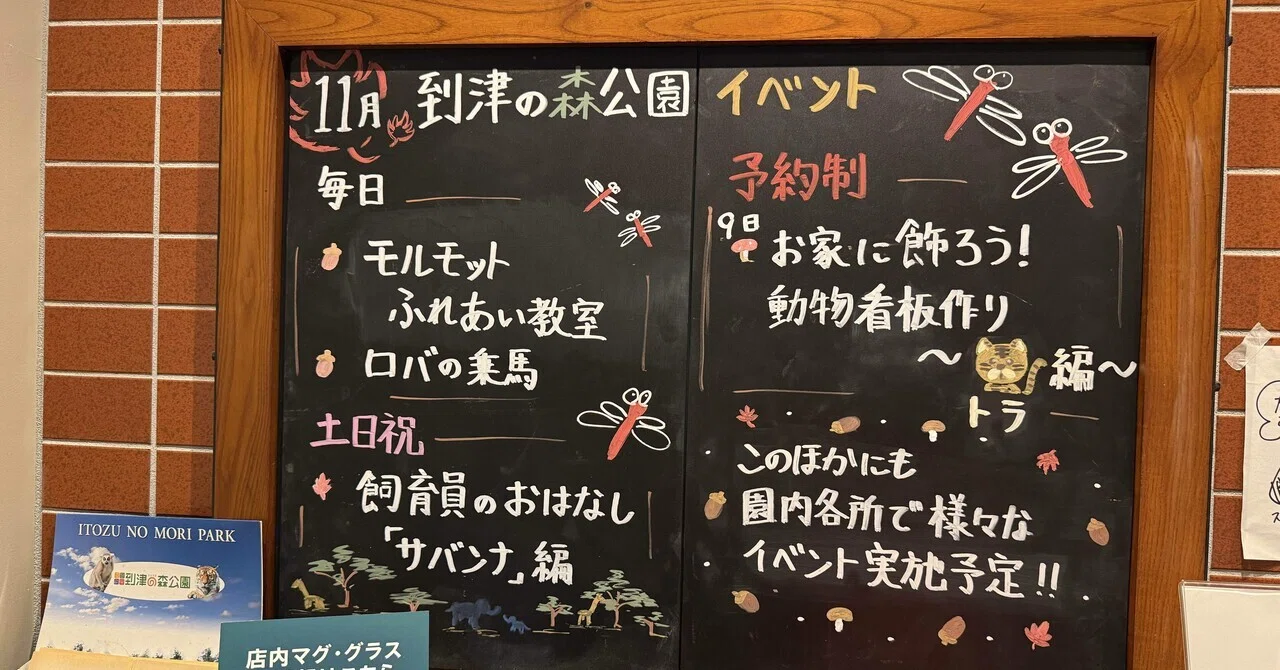 11月 到津の森公園 イベント
毎日
モルモット
ふれあい教室
ロバの乗馬
土日祝
飼育員のおはなし
「サバンナ」編
予約制
9日
お家に飾ろう!
動物看板作り
〜 編〜
トラ
このほかにも
園内各所で様々な
イベント実施予定!!
ITOZU NO MORI PARK
到津の森公園
店内マグ・グラス